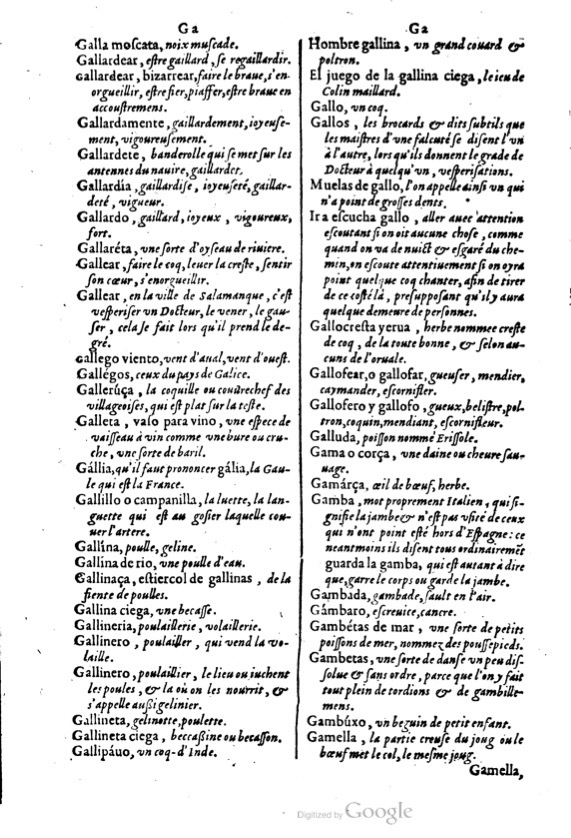 Ga
Galla moscata, noix muscade.
Gallardear, estre gaillard, se regaillardir.
Gallardear, bizarrear, faire le braue, s'en-
orgueillir, estre fier, piaffer, estre braue en
accoustremens.
Gallardamente, gaillardement, ioyeuse-
ment, vigoureusement.
Gallardete, banderolle qui se met sur les
antennes du nauire, gaillardet.
Gallardía, gaillardise, ioyeuseté, gaillar-
deté, vigueur.
Gallardo, gaillard, ioyeux, vigoureux,
fort.
Gallaréta, vne sorte d'oyseau de riuiere.
Gallear, faire le coq, leuer la creste, sentir
son cœur, s'enorgueillir.
Gallear, en la ville de Salamanque, c'est
vesperiser vn Docteur, le vener, le gau-
ser, cela se fait lors qu'il prend le de-
gré.
Gallego viento, vent d'aual, vent d'ouest.
Gallégos, ceux du pays de Galice.
Gallerúça, la coquille ou couurechef des
villageoises, qui est plat sur la teste.
Galleta, vaso para vino, vne espece de
vaisseau à vin comme vne bure ou cru-
che, vne sorte de baril.
Gállia, qu'il faut prononcer gália, la Gau-
le qui est la France.
Gallillo o campanilla, la luette, la lan-
guette qui est au gosier laquelle cou-
uer l'artere.
Gallína, poulle, geline.
Gallína de rio, vne poulle d'eau.
Gallinaça, estiercol de gallinas, de la
fiente de poulles.
Gallina ciega, vne becasse.
Gallineria, poulaillerie, volaillerie.
Gallinero, poulailler, qui vend la vo-
laille.
Gallinero, poulaillier, le lieu ou iuchent
les poules, & la où on les nourrit, &
s'appelle aussi gelinier.
Gallineta, gelinotte, poulette.
Gallineta ciega, beccassine ou becasson.
Gallipáuo, vn coq-d'Inde.
Ga
Hombre gallina, vn grand couard &
poltron.
El juego de la gallina ciega, le ieu de
Colin maillard.
Gallo, vn coq.
Gallos, les brocards & dits subtils que
les maistres d'vne falcuté se disent l'vn
à l'autre, lors qu'ils donnent le grade de
Docteur à quelqu'vn, vesperisations.
Muelas de gallo, l'on appelle ainsi vn qui
n'a point de grosses dents.
Ir a escucha gallo, aller auec attention
escoutant si on oit aucune chose, comme
quand on va de nuict & esgaré du che-
min, on escoute attentiuement si on oyra
point quelque coq chanter, afin de tirer
de ce costé là, presupposant qu'il y aura
quelque demeure de personnes.
Gallocresta yerua, herbe nommee creste
de coq, de la toute bonne, & selon au-
cuns de l'oruale.
Gallofear, o gallofar, gueuser, mendier,
caymander, escornifler.
Gallofero y gallofo, gueux, belistre, pol-
tron, coquin, mendiant, escornifleur.
Galluda, poisson nommé Erissole.
Gama o corça, vne daine ou cheure sau-
uage.
Gamárça, œil de bœuf, herbe.
Gamba, mot proprement Italien, qui si-
gnifie la jambe & n'est pas vsité de ceux
qui n'ont point esté hors d'Espagne: ce
neantmoins ils disent tous ordinairemēt
guarda la gamba, qui est autant à dire
que, garre le corps ou garde la jambe.
Gambada, gambade, sault en l'air.
Gámbaro, escreuice, cancre.
Gambétas de mar, vne sorte de petits
poissons de mer, nommez des poussepieds.
Gambetas, vne sorte de danse vn peu dis-
solue & sans ordre, parce que l'on y fait
tout plein de tordions & de gambille-
mens.
Gambúxo, vn beguin de petit enfant.
Gamella, la partie creuse du joug où le
bœuf met le col, le mesme joug.
Gamella,
Digitized by Google